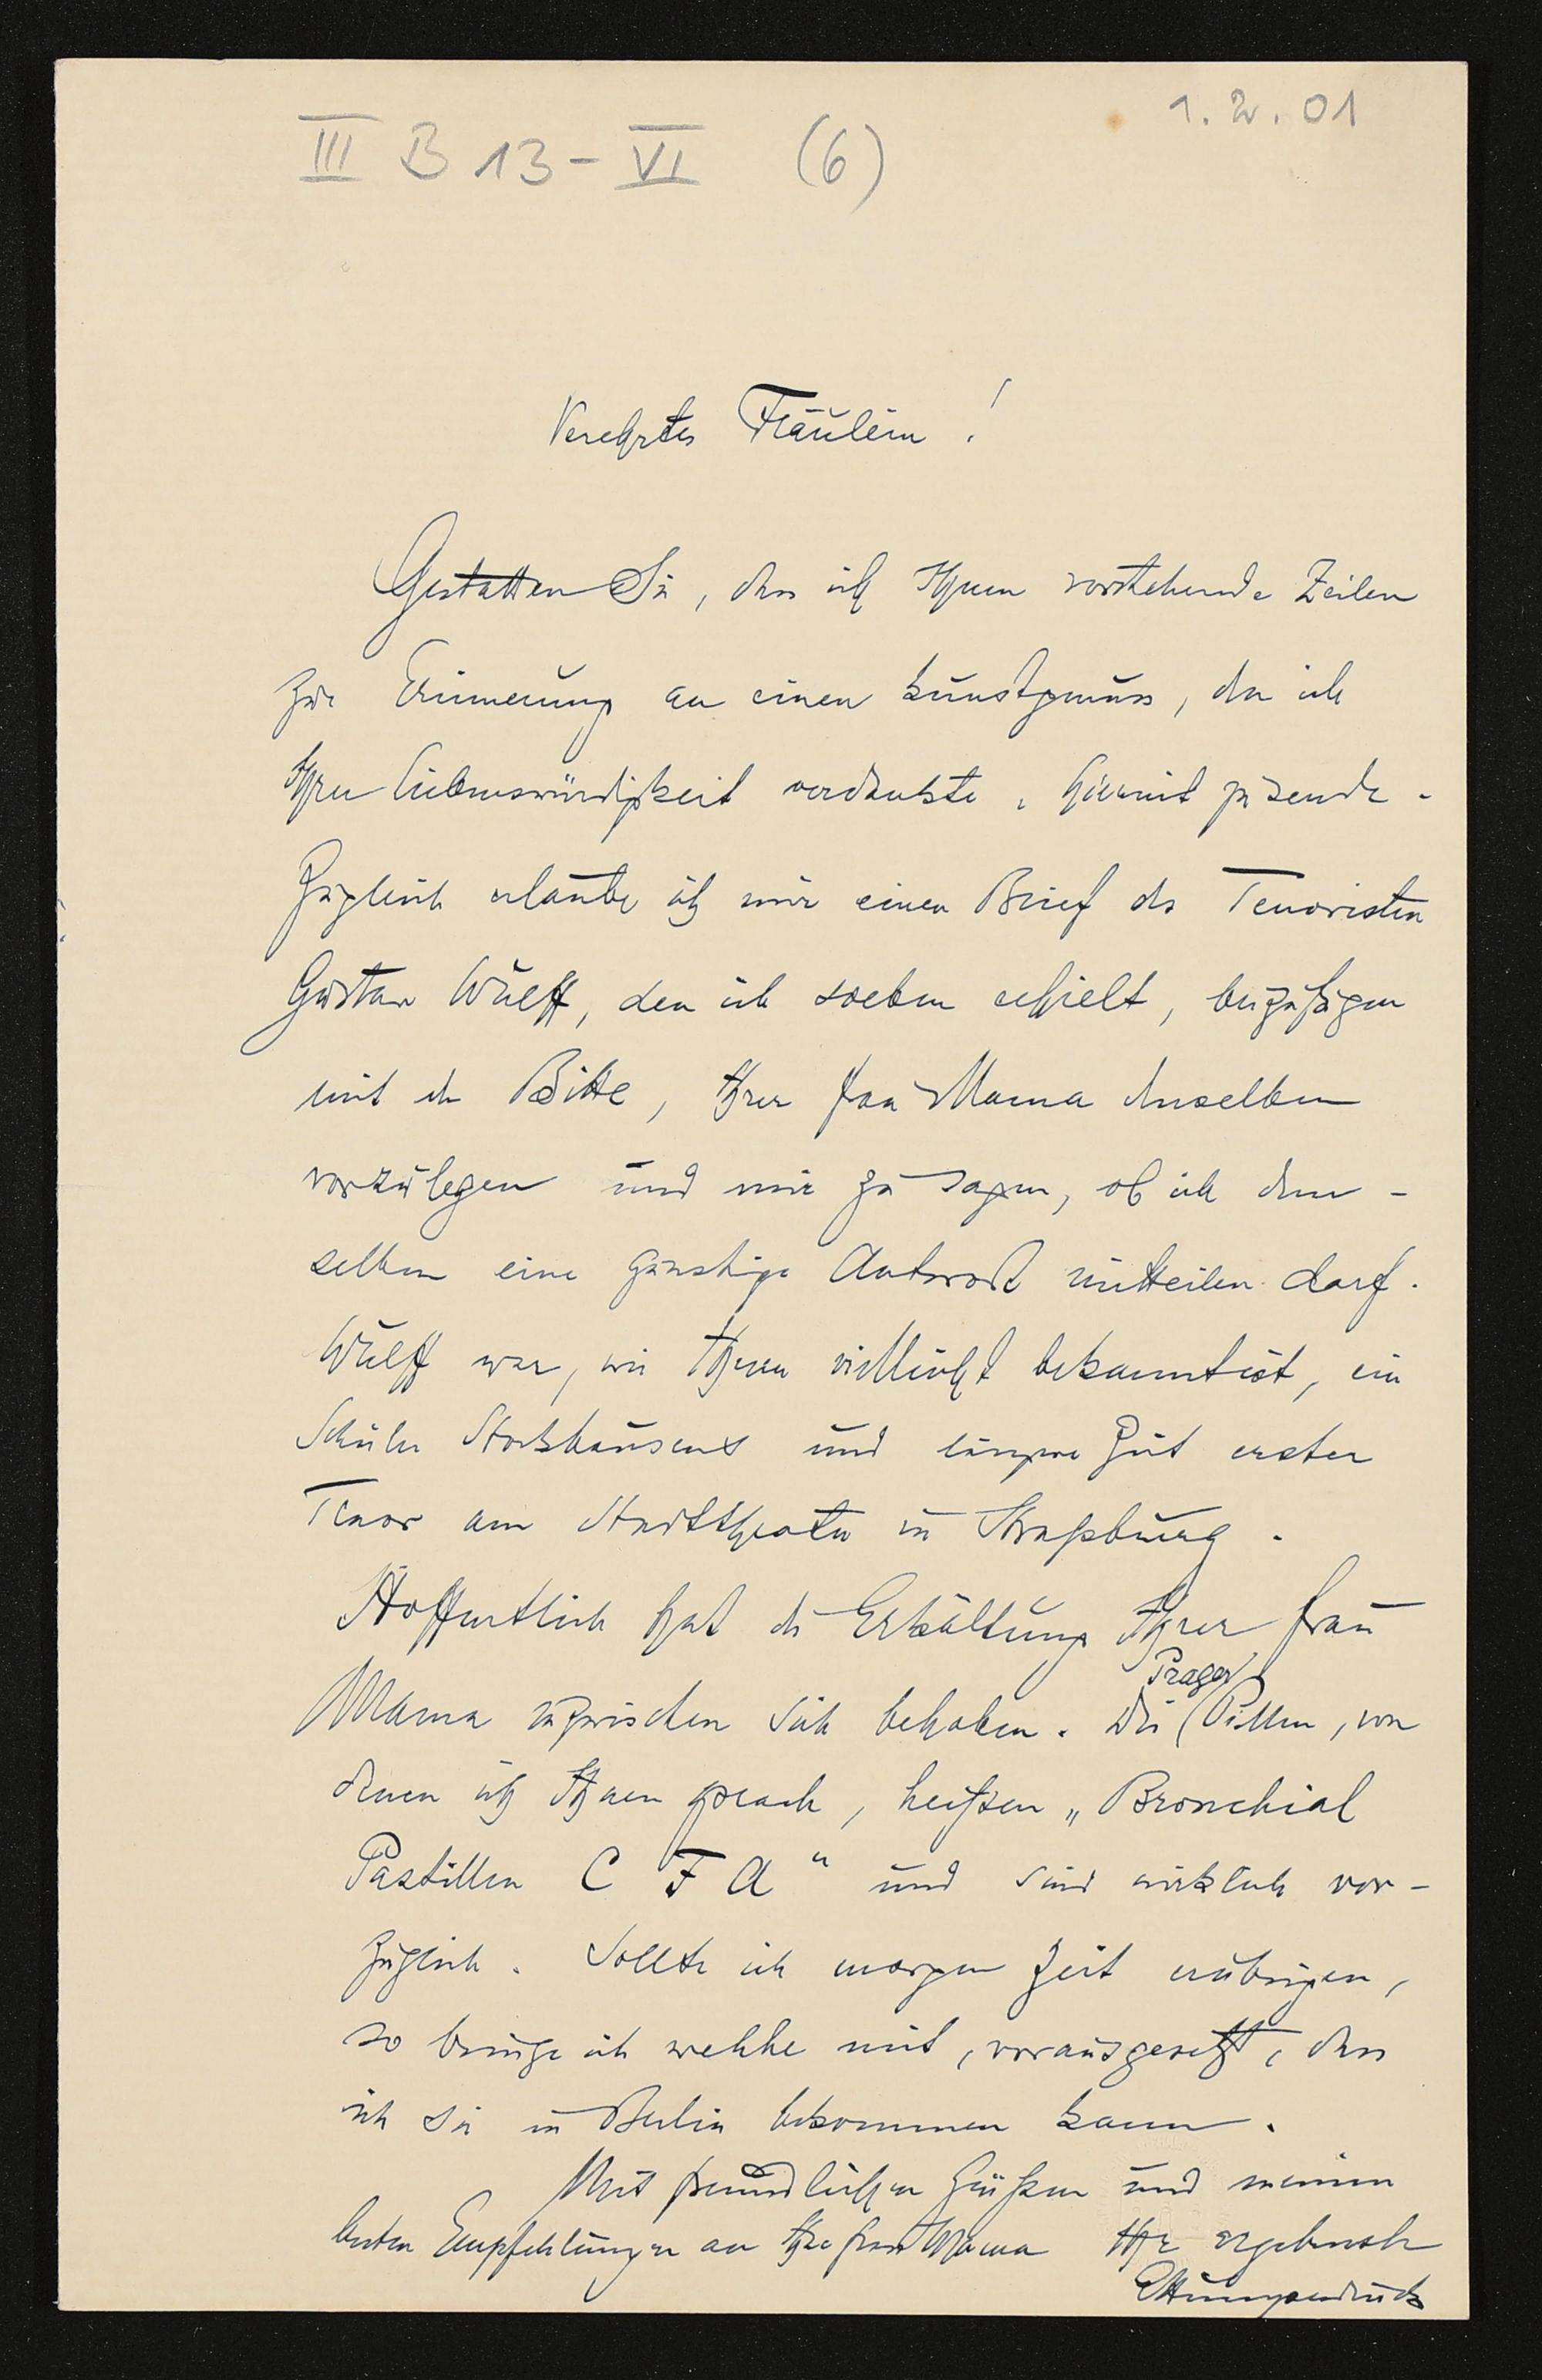 III B 13 - VI (6)
1. 2. 01
Verehrtes Fräulein!
Gestatten Sie, dass ich Ihnen vorstehende Zeilen
zur Erinnerung an einen Kunstgenuss, den ich
Ihrer Liebenswürdigkeit verdankte, hiermit zusende.
Zugleich erlaube ich mir einen Brief des Tenoristen
Gustav Wulff, den ich soeben erhielt, beizufügen
mit der Bitte, Ihrer Frau Mama denselben
vorzulegen und mir zu sagen, ob ich dem-
selben eine günstige Antwort mitteilen darf.
Wulff war, wie Ihnen vielleicht bekannt ist, ein
Schüler Stockhausens und längere Zeit erster
Tenor am Stadttheater in Straßburg.
Hoffentlich hat die Erkältung Ihrer Frau
Mama inzwischen sich behoben. Die Prager Pillen, von
denen ich Ihnen sprach, heißen „Bronchial
Pastillen C F A“ und sind wirklich vor-
züglich. Sollte ich morgen Zeit erübrigen,
so bringe ich welche mit, vorausgesetzt, dass
ich sie in Berlin bekommen kann.
Mit freundlichen Grüßen und meinen
besten Empfehlungen an Ihre Frau Mama Ihr ergebenster